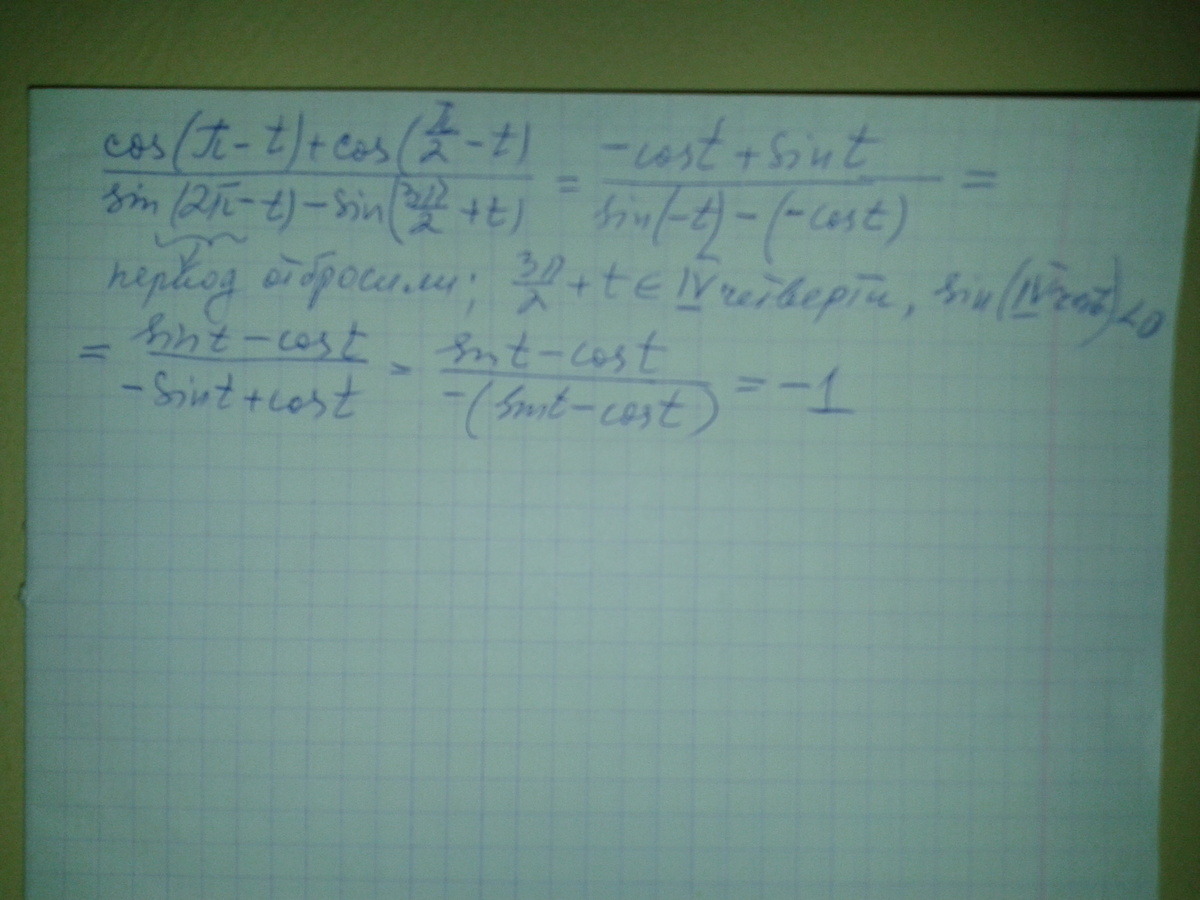 cos(π-t)+cos(π/2-t) / sin(2π-t)-sin(3π/2+t) = -cost+sint / sin(-t)-(-cost) =
период отбросили; 3π/2+t∈IV четверти, sin(IV четв)<0
= sint-cost / -sint+cost = sint-cost / -(sint-cost) = -1